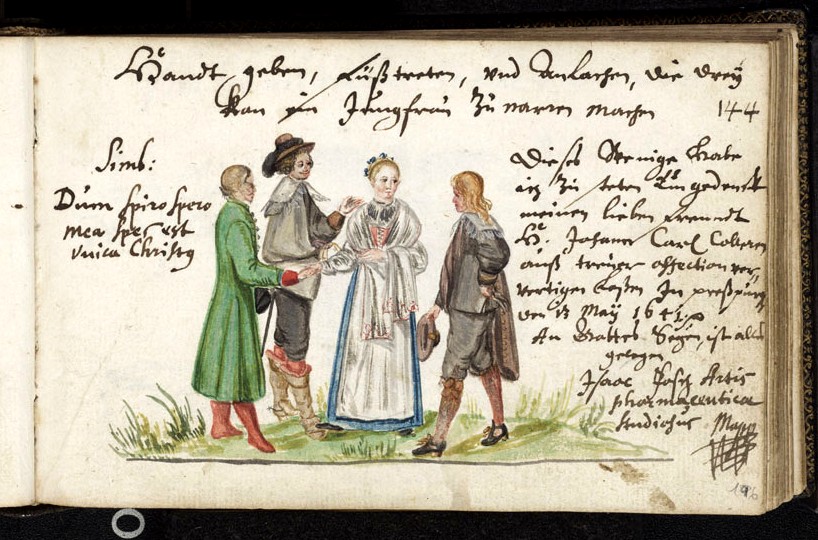 Handt geben, Füßtreten, vnd Anlachen, die drey
Kan ein Jungfraw zu narren machen
144
Simb:
Dum spiro spero
mea spes est
vnica Christq
Dieses Wenige habe
ich zu
meinen lieben Freundt
H: Johann Carl
auß trewer affection ver,
vertigen laßen In preßpurg
den 13 May 1641
An Gottes Segen, ist alles
gelegen
Isaac Artis
pharmaceuticæ
studiosus Mapp
196